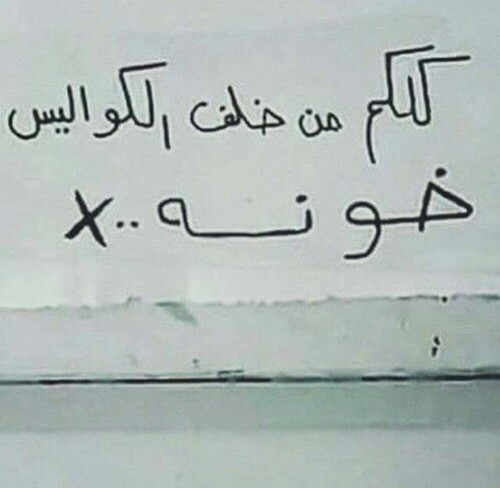 كلكم من خلف الكواليس
خونه..x